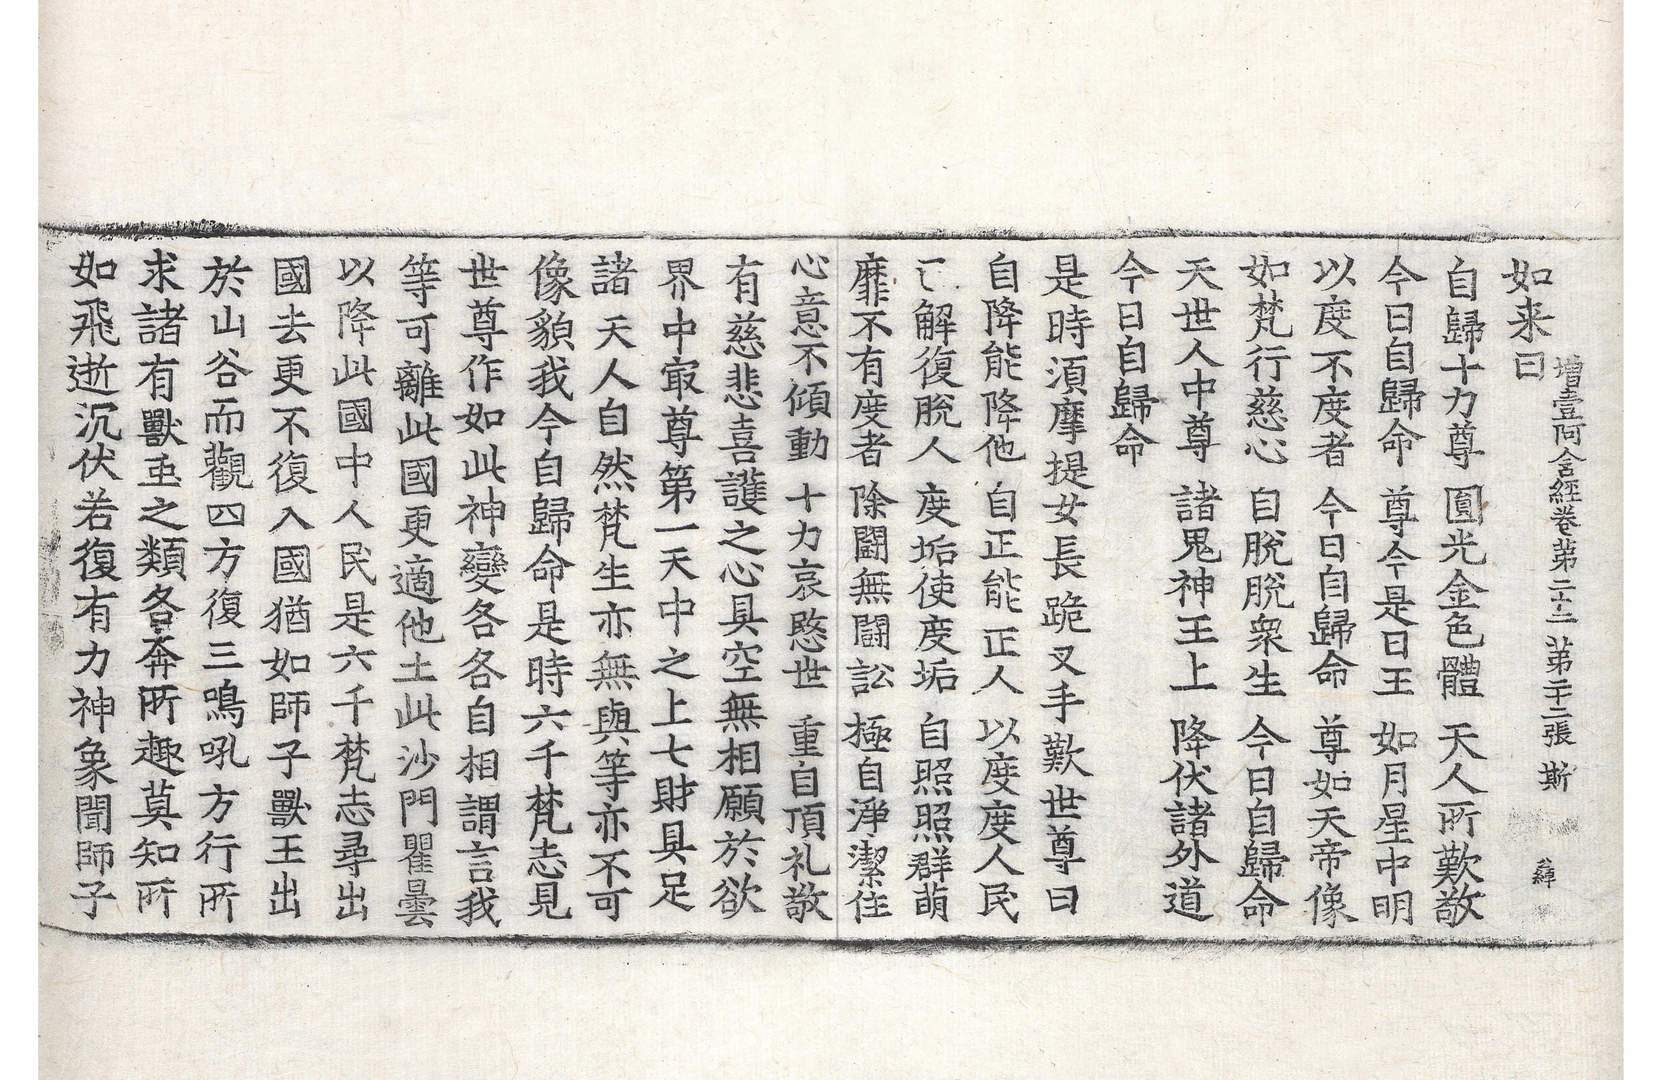 如来曰
增壹阿含經卷第二十二　第二十二張　斯
自歸十力尊　圓光金色體　天人所歎敬
今日自歸命　尊今是日王　如月星中明
以度不度者　今日自歸命　尊如天帝像
如梵行慈心　自脫脫衆生　今日自歸命
天世人中尊　諸鬼神王上　降伏諸外道
今日自歸命
是時須摩提女長跪叉手歎世尊曰
自降能降他　自正能正人　以度度人民
解復脫人　度垢使度垢　自照照群萌
靡不有度者　除闘無闘訟　極自淨潔住
心意不傾動　十力哀愍世　重自頂礼敬
有慈悲喜護之心具空無相願於欲
界中㝡尊第一天中之上七財具足
諸天人自然梵生亦無與等亦不可
像貌我今自歸命是時六千梵志見
世尊作如此神變各各自相謂言我
等可離此國更適他土此沙門瞿曇
以降此國中人民是六千梵志尋出
國去更不復入國猶如師子獸王出
於山谷而觀四方復三鳴吼方行所
求諸有獸虫之類各奔所趣莫知所
如飛逝沉伏若復有力神象聞師子